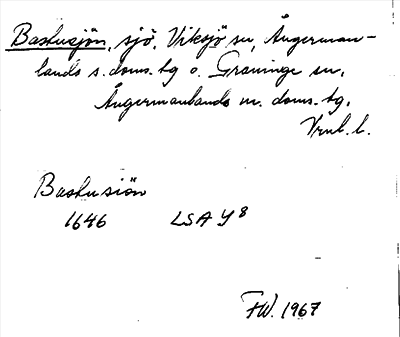 Bastusjön, sjö, Viksjö sn, Ångerman-
lands s. doms. tg o. Graninge sn,
Ångermanlands m. doms. tg,
Vrnl. l.
Bastusiön
1646 LSA Y8
FW. 1967